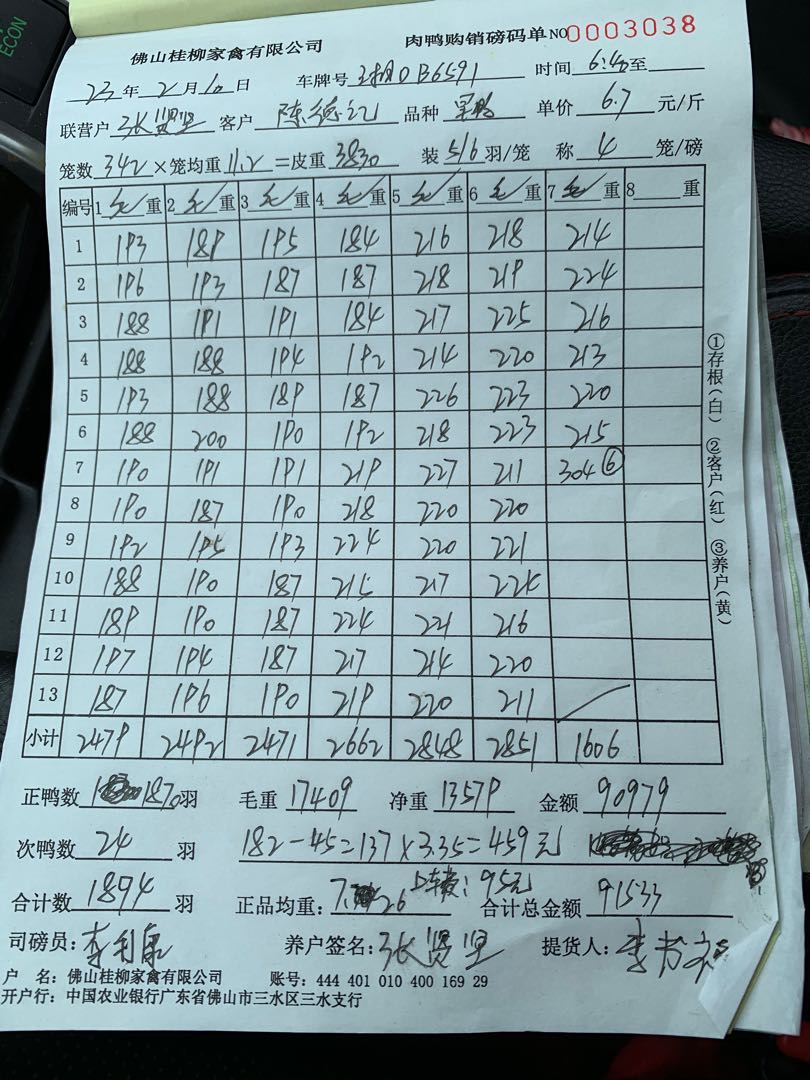 ECON
佛山桂柳家禽有限公司 肉鸭购销磅码单 NO 0003038
23年2月10日 车牌号 B6591 时间 6:40至
联营户 张贤坚 客户 陈德记 品种 单价 6.7 元/斤
笼数 342 ×笼均重 11.2 =皮重 3830 装 5/6 羽/笼 称 4 笼/磅
编号 1 毛 重 2 毛 重 3 毛 重 4 毛 重 5 毛 重 6 毛 重 7 毛 重 8 重
1 193 189 195 184 216 218 214
2 196 193 187 187 218 219 224
3 188 191 191 184 217 225 216
4 188 188 194 192 214 220 213
5 193 188 189 187 226 223 220
6 188 200 190 192 218 223 215
7 190 191 191 219 227 211 304 ⑥
8 190 187 190 218 220 220
9 192 195 193 224 220 221
10 188 190 187 215 217 224
11 189 190 187 224 221 216
12 197 194 187 217 214 220
13 187 196 190 219 220 211
小计 2479 2492 2471 2662 2848 2851 1606
①存根(白) ②客户(红) ③养户(黄)
正鸭数 1870羽 毛重 17409 净重 13579 金额 90979
次鸭数 24 羽 182-45=137×3.35=459元
上车费: 95元
合计数 1894 羽 正品均重: 7.26 合计总金额 91533
司磅员: 李利康 养户签名: 张贤坚 提货人: 李
户 名: 佛山桂柳家禽有限公司 账号: 444 401 010 400 169 29
开户行: 中国农业银行广东省佛山市三水区三水支行